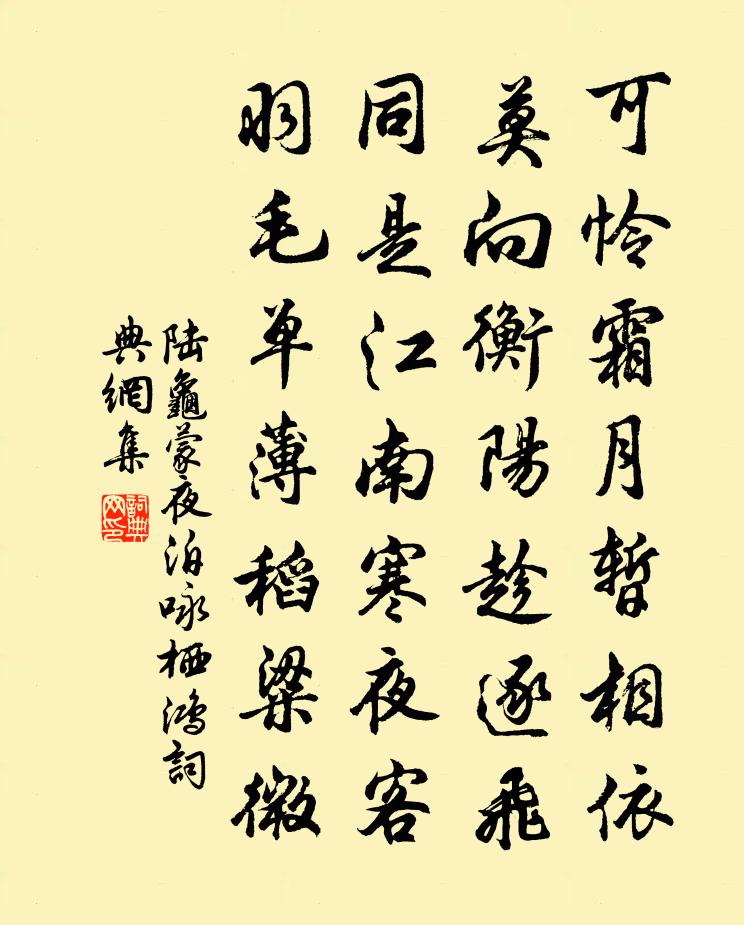 可怜霜月暂相依
莫向衡陽趁逐飛
同是江南寒夜客
羽毛单薄稻粱微
陆龜蒙夜泊咏栖鴻詞
典網集
詞典网印